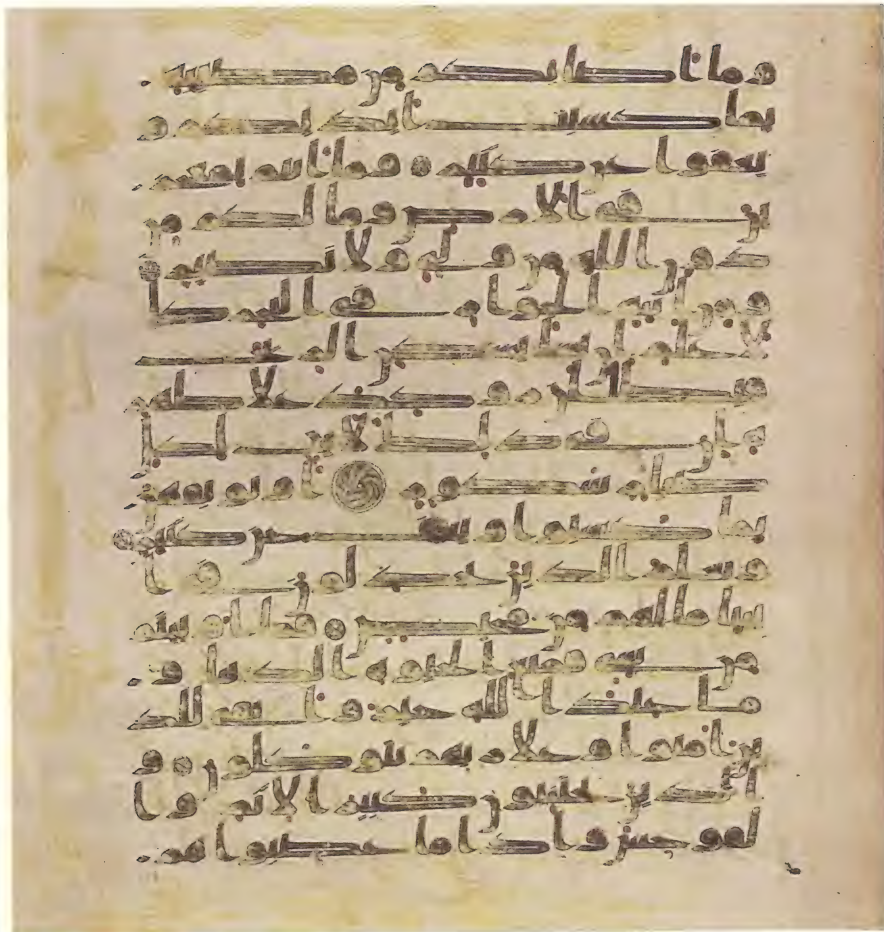 وما اصابكم من مصيبة
بما كسبت ايديكم و
يعفوا عن كثير وما انتم بمعجز
ين في الارض وما لكم من
دون الله من ولي ولا نصير
ومن ايته الجوار في البحر كا
لاعلم ان يشا يسكن الريح
فيظللن رواكد على ظهر
ه ان في ذلك لايت لكل صبا
ر شكور او يوبقهن
بما كسبوا ويعف عن كثير
ويعلم الذين يجدلون في ا
يتنا ما لهم من محيص فما اوتيتم
من شي فمتع الحيوة الدنيا و
ما عند الله خير وابقى للذ
ين امنوا وعلى ربهم يتوكلون و
الذين يجتنبون كبير الاثم وا
لفوحش واذا ما غضبوا هم